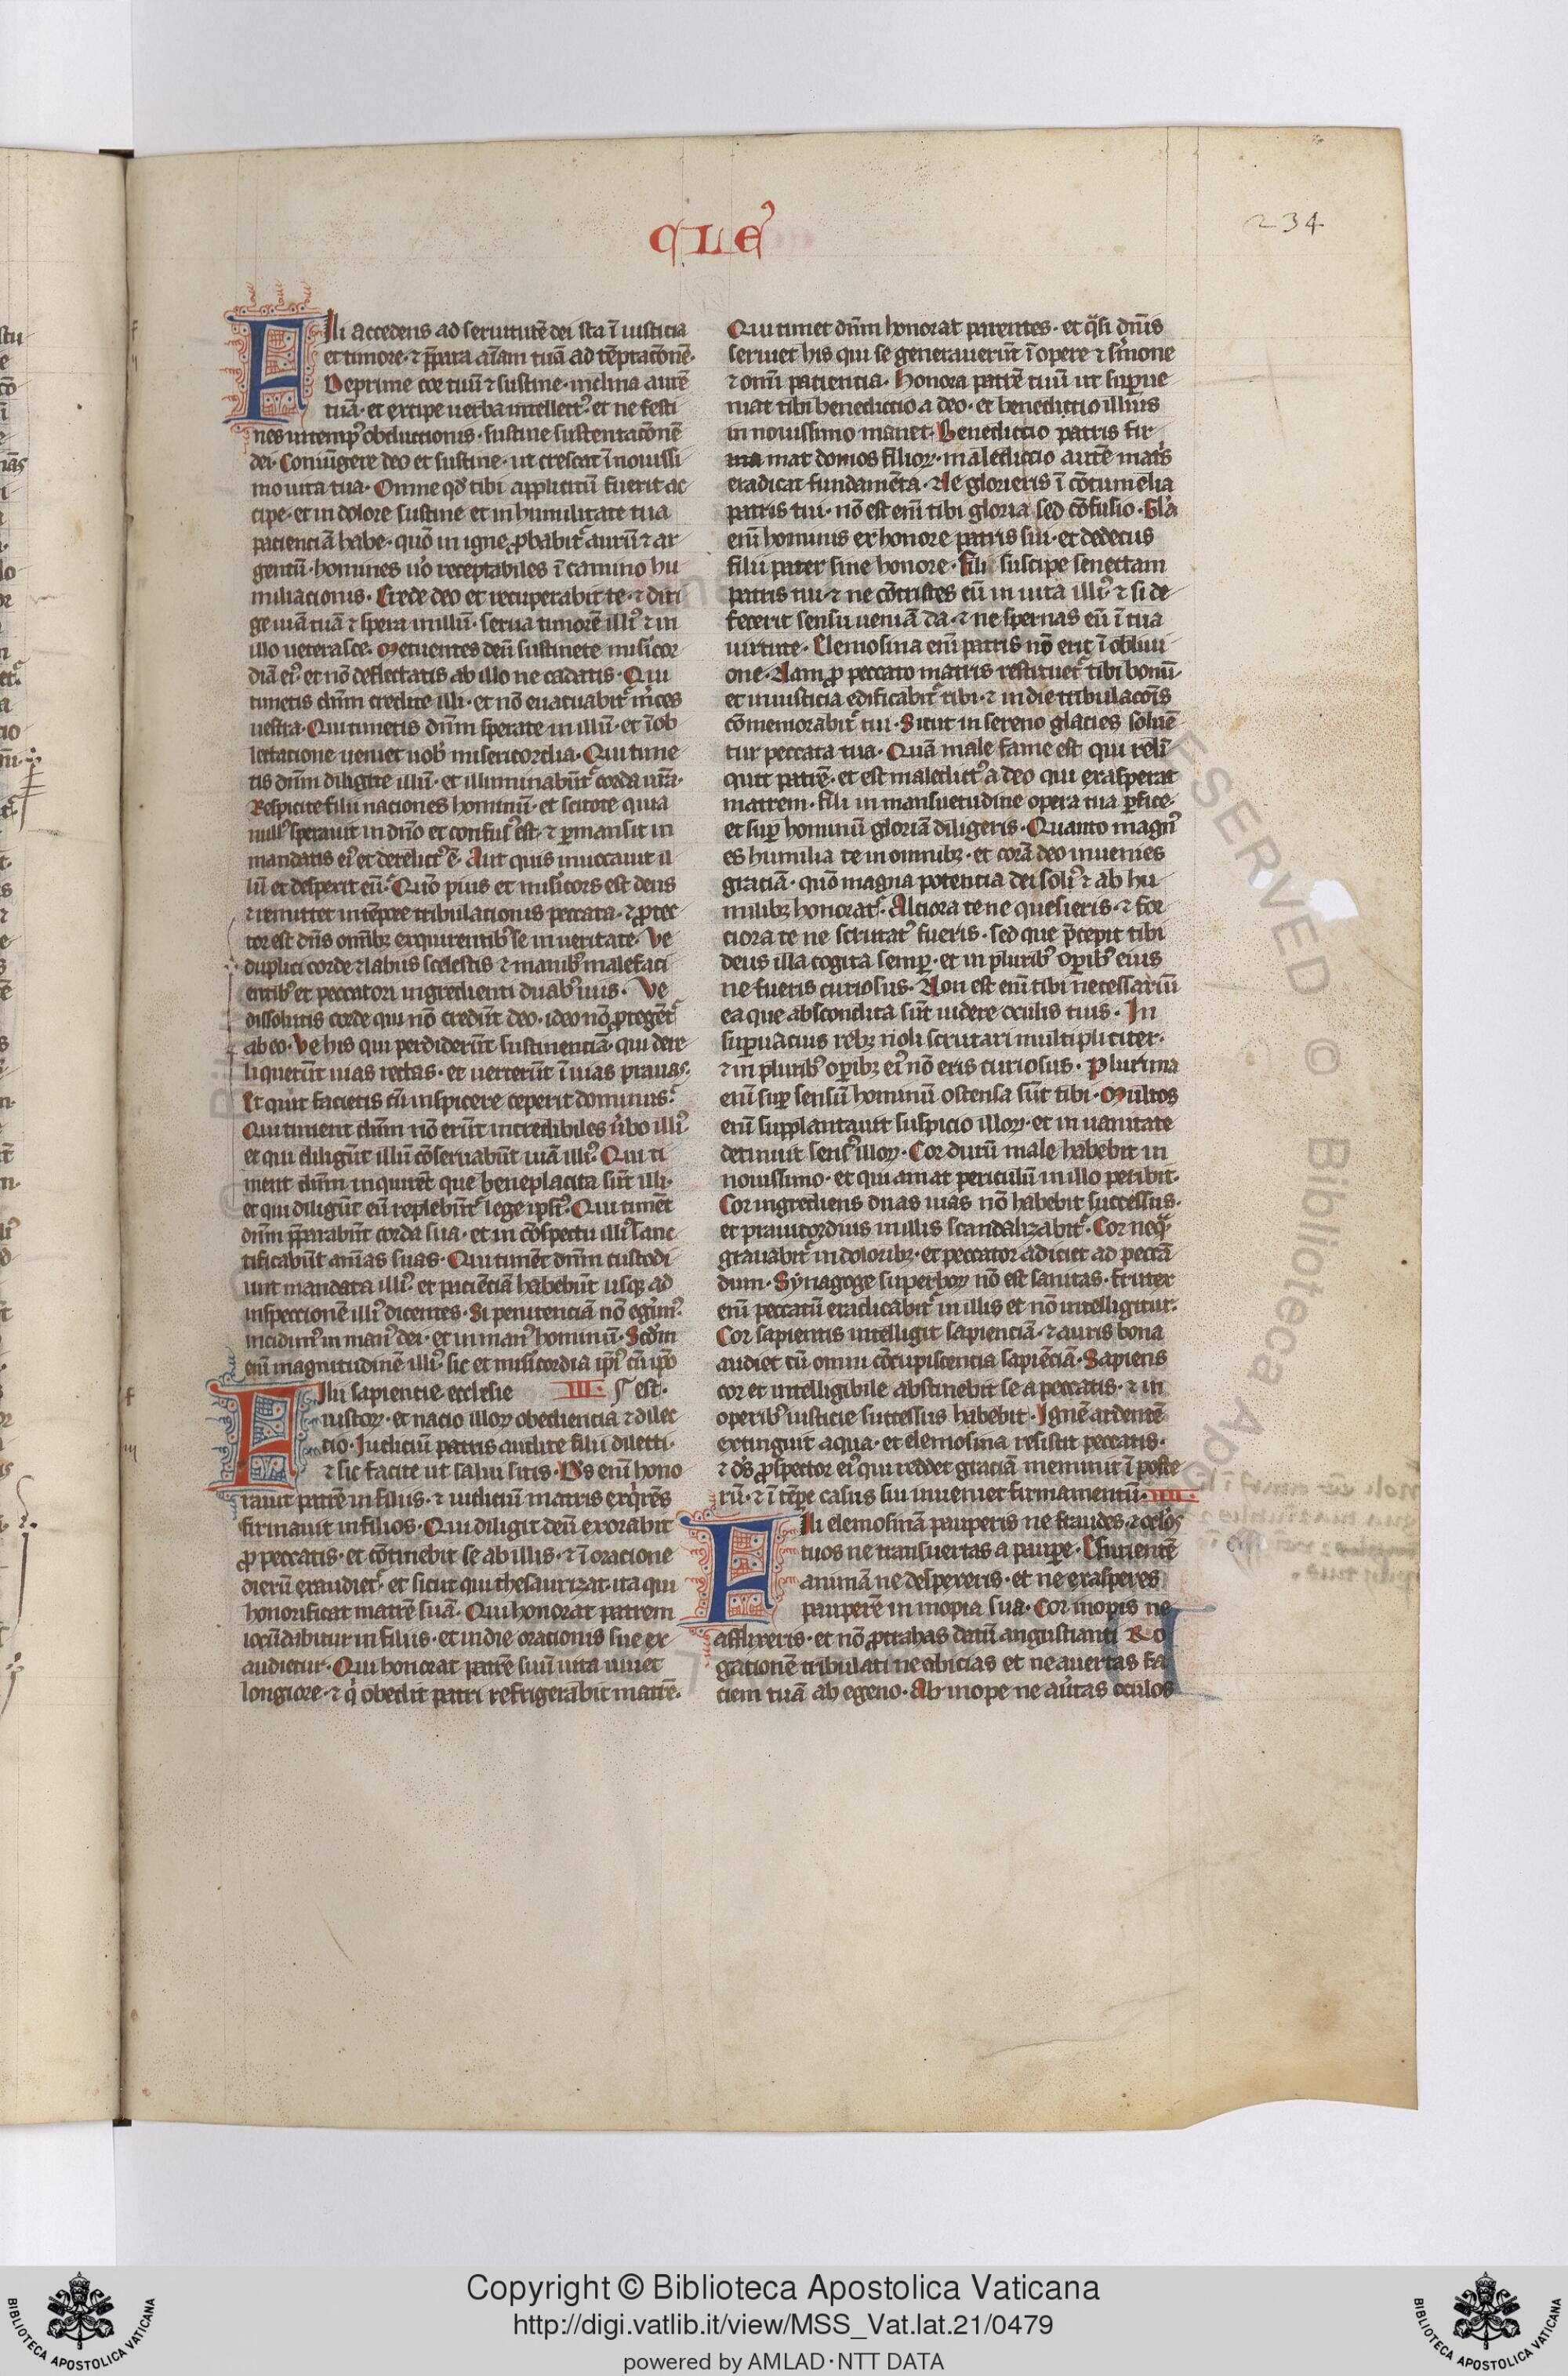 CLE
234
Fili accedens ad seruitutē dei sta ī iusticia
et timore· ⁊ p̄para aīam tuā ad tēptacōnē·
Deprime cor tuū ⁊ sustine· inclina aurē
tuā· et excipe uerba intellectꝰ· et ne festi
nes in tempꝰ obductionis· sustine sustentacōnē
dei· Coniūgere deo et sustine· ut crescat ī nouissi
mo uita tua· Omne qd̄ tibi applicitū fuerit ac
cipe· et in dolore sustine et in humilitate tua
pacienciā habe· quō in igne ꝓbabit᷑ aurū ⁊ ar
gentū· homines uo receptabiles ī camino hu
miliacionis· Crede deo et recuperabit te· ⁊ diri
ge uiā tuā ⁊ spera in illū· serua timorē illiꝰ ⁊ in
illo ueterasce· Metuentes deū sustinete misicor
diā eiꝰ· et nō deflectatis ab illo ne cadatis· Qui
timetis dn̄m credite illi· et nō euacuabit᷑ m̄ces
uestra· Qui timetis dn̄m sperate in illū· et ī ob
lectatione ueniet uob̄ misericordia· Qui time
tis dn̄m diligite illū· et illuminabūt᷑ corda ur̄a·
Respicite filii naciones hominū· et scitote quia
nullꝰ sperauit in dn̄o et confusꝰ est· ⁊ ꝑmansit in
mandatis eiꝰ et derelictꝰ ē· Aut quis inuocauit il
lū et despexit eū· Quō pius et misicors est deus
⁊ remittet in tēpore tribulacionis peccata· ⁊ ꝓtec
tor est dn̄s omībꝫ exquirentibꝰ se in ueritate· Ve
duplici corde ⁊ labiis scelestis ⁊ manibꝰ malefaci
entibꝰ et peccatori ingredienti duabꝰ uiis· Ve
dissolutis corde qui nō credūt deo· ideo nō ꝓtegēt᷑
ab eo· Ve his qui perdiderūt sustinenciā· qui dere
liquerūt uias rectas· et uerterūt ī uias prauas·
Et quit facietis cū inspicere ceperit dominus·
Qui timent dn̄m nō erūt incredibiles u̓bo illiꝰ
et qui diligūt illū cōseruabūt uiā illiꝰ· Qui ti
ment dn̄m inquirēt que beneplacita sūt illi·
et qui diligūt eū replebūt᷑ lege ipsiꝰ· Qui timēt
dn̄m p̄parabūt corda sua· et in cōspectu illiꝰ sanc
tificabūt an̄as suas· Qui timēt dn̄m custodi
unt mandata illiꝰ· et paciēciā habebūt usqꝫ ad
inspeccionē illiꝰ dicentes· Si penitenciā nō egimꝰ·
incidimꝰ in manꝰ dei· et in manꝰ hominū· Scd̄m
eni magnitudinē illiꝰ· sic et misicordia ip̄iꝰ cū ip̄o
Filii sapiencie ecclesie III· est·
iustoꝝ· et nacio illoꝝ obediencia ⁊ dilec
tio· Iudiciū patris audite filii dilecti·
⁊ sic facite ut salui sitis· Ds̄ eni hono
rauit patrē in filiis· ⁊ iudiciū matris exq̓rēs
firmauit in filios· Qui diligit deū exorabit
ꝓ peccatis· et cōtinebit se ab illis· ⁊ ī oracione
dierū exaudiet᷑· et sicut qui thesaurizat· ita qui
honorificat matrē suā· Qui honorat patrem
iocūdabitur in filiis· et in die orationis sue ex
audietur· Qui honorat patrē suū uita uiuet
longiore· ⁊ q̓ obedit patri refrigerabit matrē·
Qui timet dn̄m honorat parentes· et q̄si dn̄is
seruiet his qui se generauerūt ī opere ⁊ s̄mone
⁊ omī patientia· Honora patrē tuū ut suꝑue
niat tibi benedictio a deo· et benedictio illius
in nouissimo manet· Benedictio patris fir
mat domos filioꝝ· maledictio autē matis̄
eradicat fundamēta· Ne glorieris ī cōtumelia
patris tui· nō est eni tibi gloria sed cōfusio· Gl̄a
eni hominis ex honore patris sui· et dedecus
filii pater sine honore· Fili suscipe senectam
patris tui· ⁊ ne cōtristes eū in uita illiꝰ· ⁊ si de
fecerit sensu ueniā da· ⁊ ne spernas eū ī tua
uirtute· Elemosina eni patris nō erit ī obliui
one· Nam ꝓ peccato matris restituet᷑ tibi bonū·
et in iusticia edificabit᷑ tibi· ⁊ in die tribulacōīs
cōmemorabit᷑ tui· Sicut in sereno glacies soluē
tur peccata tua· Quā male fame est qui reli
quit patrē· et est maledictꝰ a deo qui exasperat
matrem· Fili in mansuetudine opera tua ꝑfice·
et suꝑ hominū gloriā diligeris· Quanto magnꝰ
es humilia te in omnibꝫ· et corā deo inuenies
graciā· quō magna potencia dei soliꝰ ⁊ ab hu
milibꝫ honorat᷑· Alciora te ne quesieris· ⁊ for
ciora te ne scrutatꝰ fueris· sed que p̄cepit tibi
deus illa cogita semꝑ· et in pluribꝰ oꝑibꝰ eius
ne fueris curiosus· Non est eni tibi necessariū
ea que abscondita sūt uidere oculis tuis· In
suꝑuacuis rebꝫ noli scrutari multipliciter·
⁊ in pluribꝰ oꝑibꝫ eiꝰ nō eris curiosus· Plurima
eni suꝑ sensū hominū ostensa sūt tibi· Multos
eni supplantauit suspicio illoꝝ· et in uanitate
detinuit sensꝰ illoꝝ· Cor durū male habebit in
nouissimo· et qui amat periculū in illo peribit·
Cor ingrediens duas uias nō habebit successus·
et prauicordius in illis scandalizabit᷑· Cor neqꝫ
grauabit᷑ in doloribꝫ· et peccator adiciet ad peccā
dum· Synagoge superboꝝ nō est sanitas· frutex
eni peccatū eradicabit᷑ in illis et nō intelligitur·
Cor sapientis intelligit sapienciā· ⁊ auris bona
audiet cū omni cōcupiscencia sapiēciā· Sapiens
cor et intelligibile abstinebit se a peccatis· ⁊ in
operibꝰ iusticie successus habebit· Ignē ardentē
extinguit aqua· et elemosina resistit peccatis·
⁊ ds̄ ꝓspector eiꝰ qui reddet graciā meminit ī poste
rū· ⁊ ī tēpe casus sui inueniet firmamentū· IIII·
Fili elemosinā pauperis ne fraudes· ⁊ oc̓lōs
tuos ne transuertas a pauꝑe· Esurientē
animā ne despexeris· et ne exasperes
pauperē in inopia sua· Cor inopis ne
afflixeris· et nō ꝓtrahas datū angustianti Ro
gationē tribulati ne abicias et ne auertas fa
ciem tuā ab egeno· Ab inope ne au̓tas oculos
Copyright © Biblioteca Apostolica Vaticana
http://digi.vatlib.it/view/MSS_Vat.lat.21/0479
powered by AMLAD · NTT DATA
BIBLIOTECA APOSTOLICA VATICANA
BIBLIOTECA APOSTOLICA VATICANA